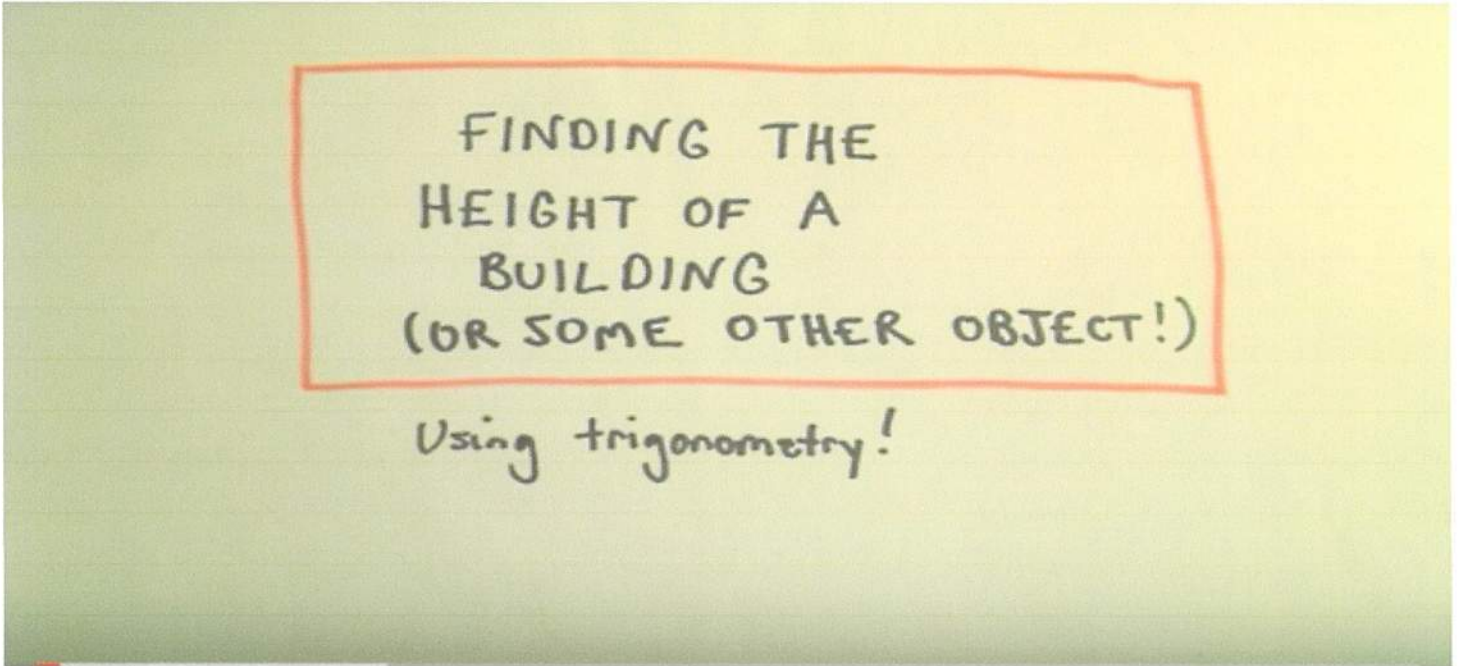 FINDING THE
HEIGHT OF A
BUILDING
(OR SOME OTHER OBJECT!)
Using trigonometry!